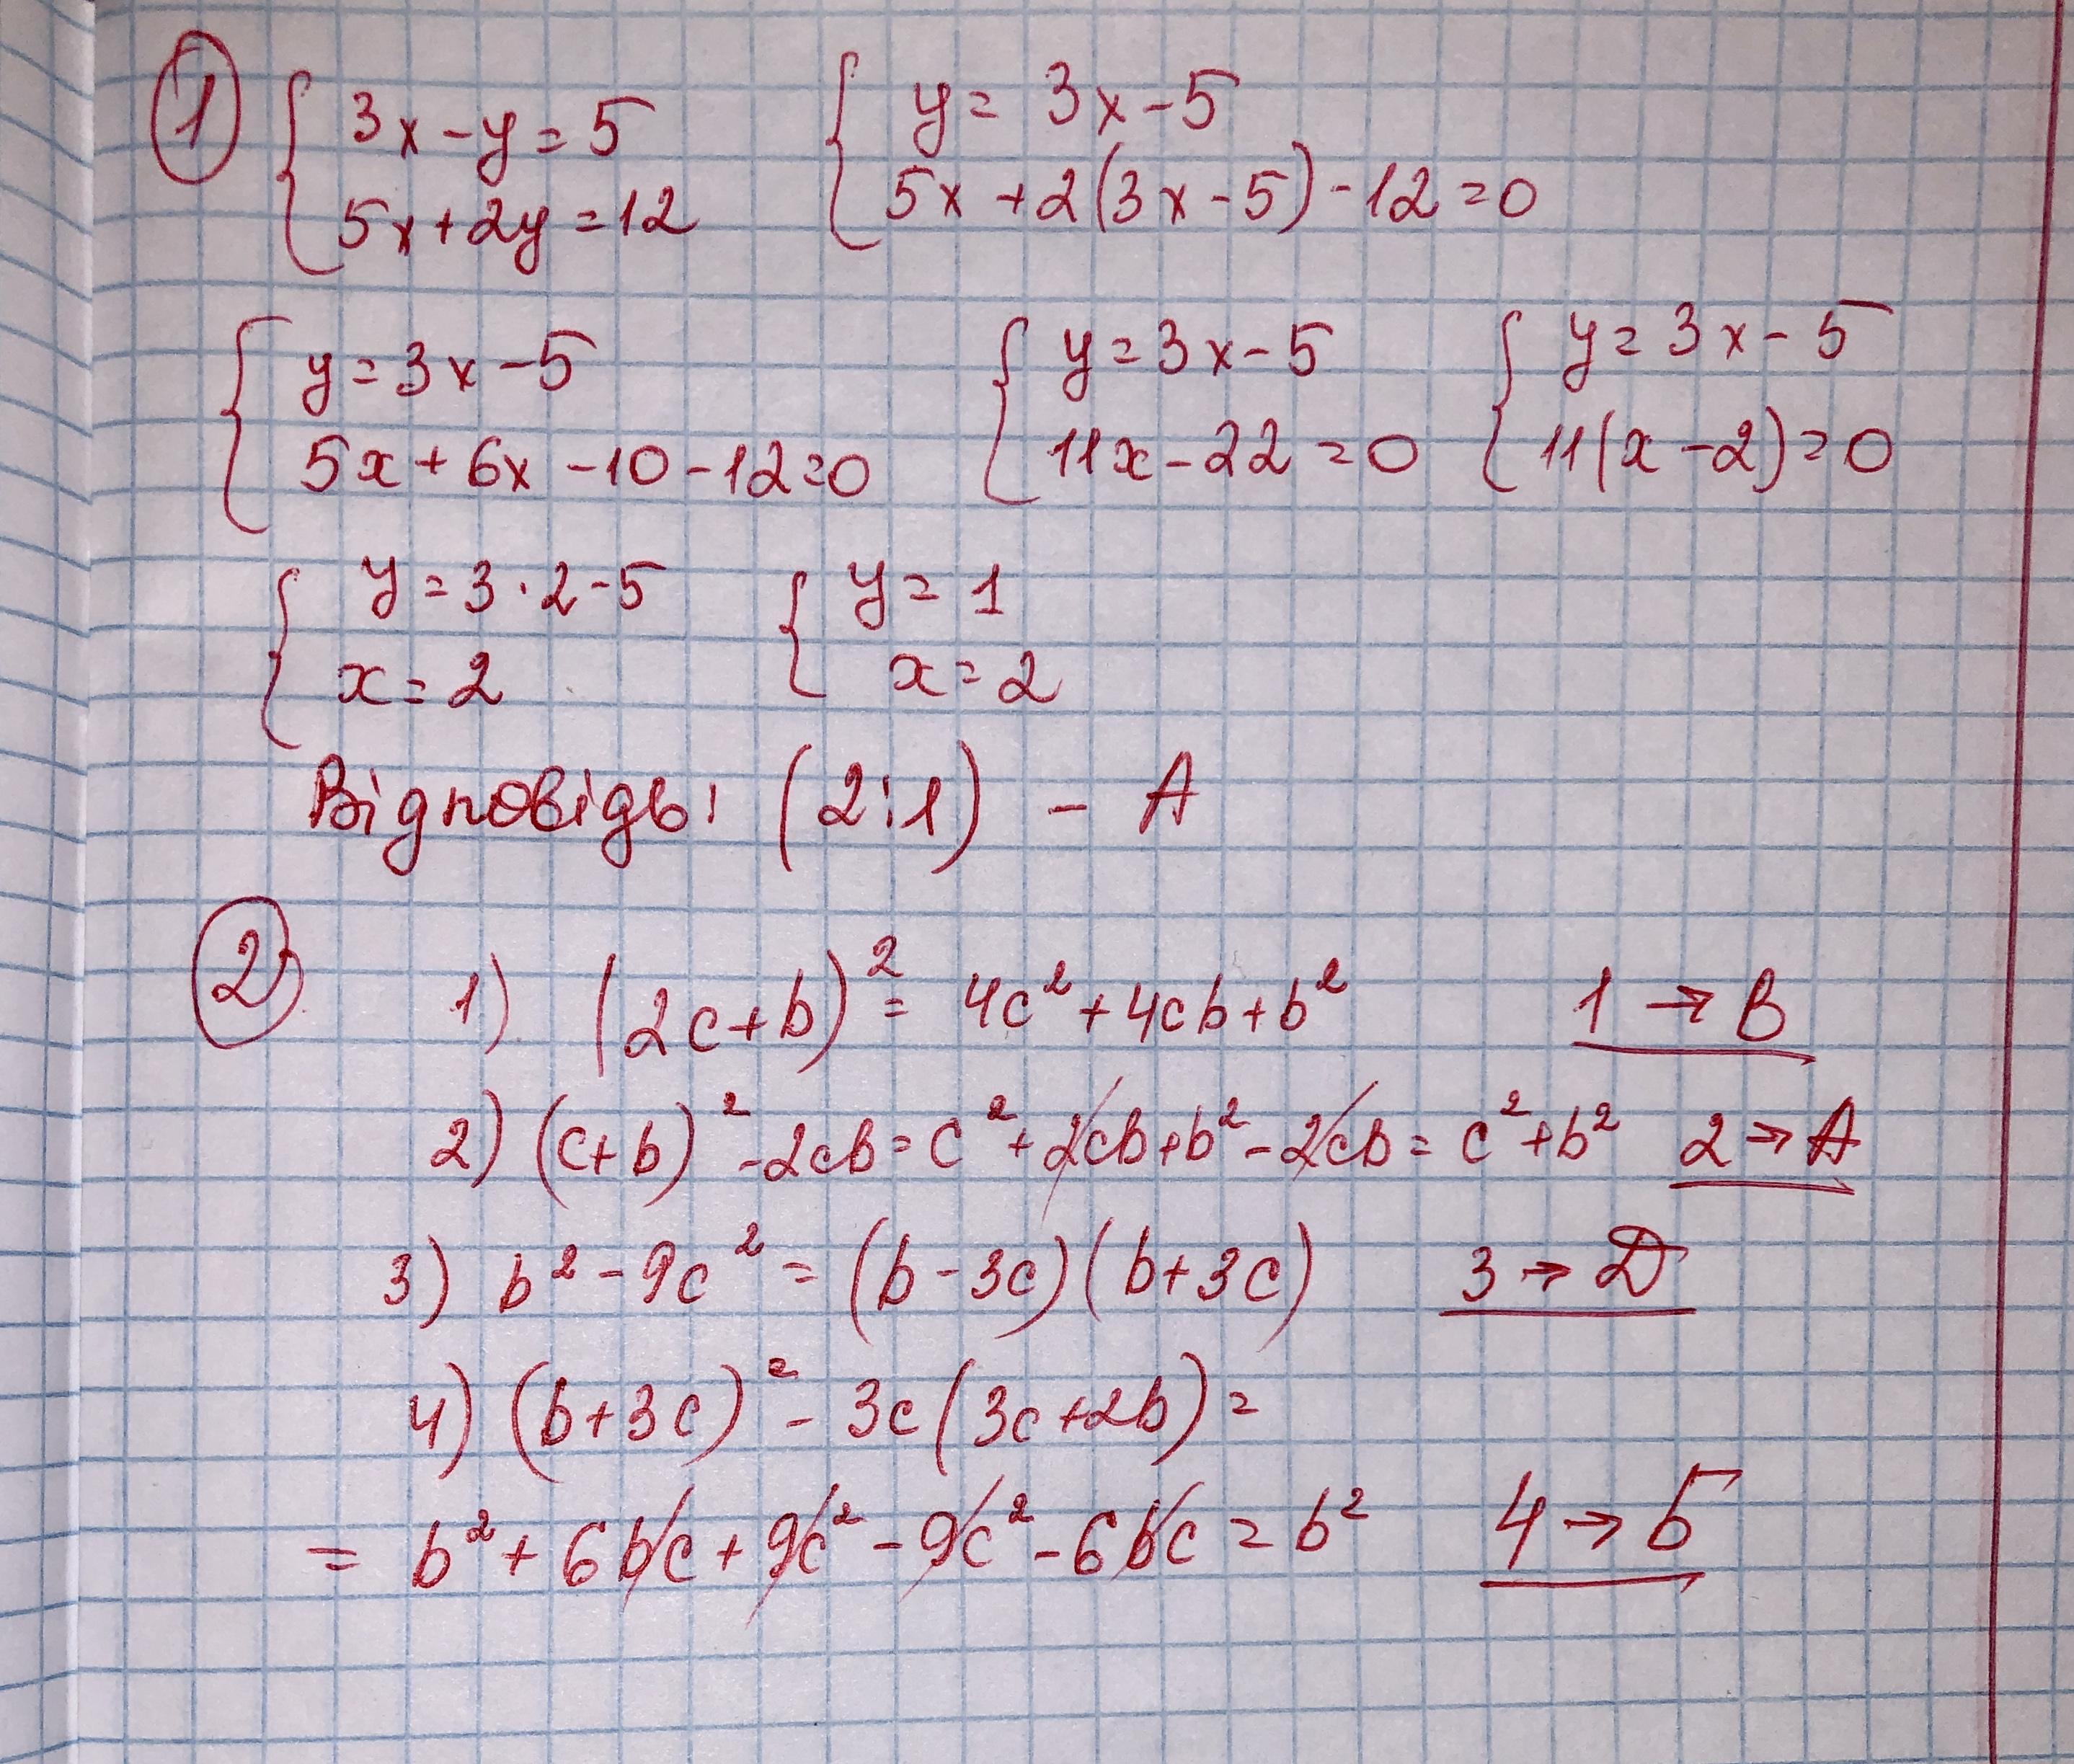 1 { 3x-y=5 { y=3x-5
5x+2y=12 5x+2(3x-5)-12=0
{ y=3x-5 { y=3x-5 { y=3x-5
5x+6x-10-12=0 11x-22=0 11(x-2)=0
{ y=3·2-5 { y=1
x=2 x=2
Відповідь: (2;1) - A
2 1) (2c+b)²=4c²+4cb+b² 1→В
2) (c+b)²-2cb=c²+2cb+b²-2cb=c²+b² 2→A
3) b²-9c²=(b-3c)(b+3c) 3→D
4) (b+3c)²-3c(3c+2b)=
=b²+6bc+9c²-9c²-6bc=b² 4→Б